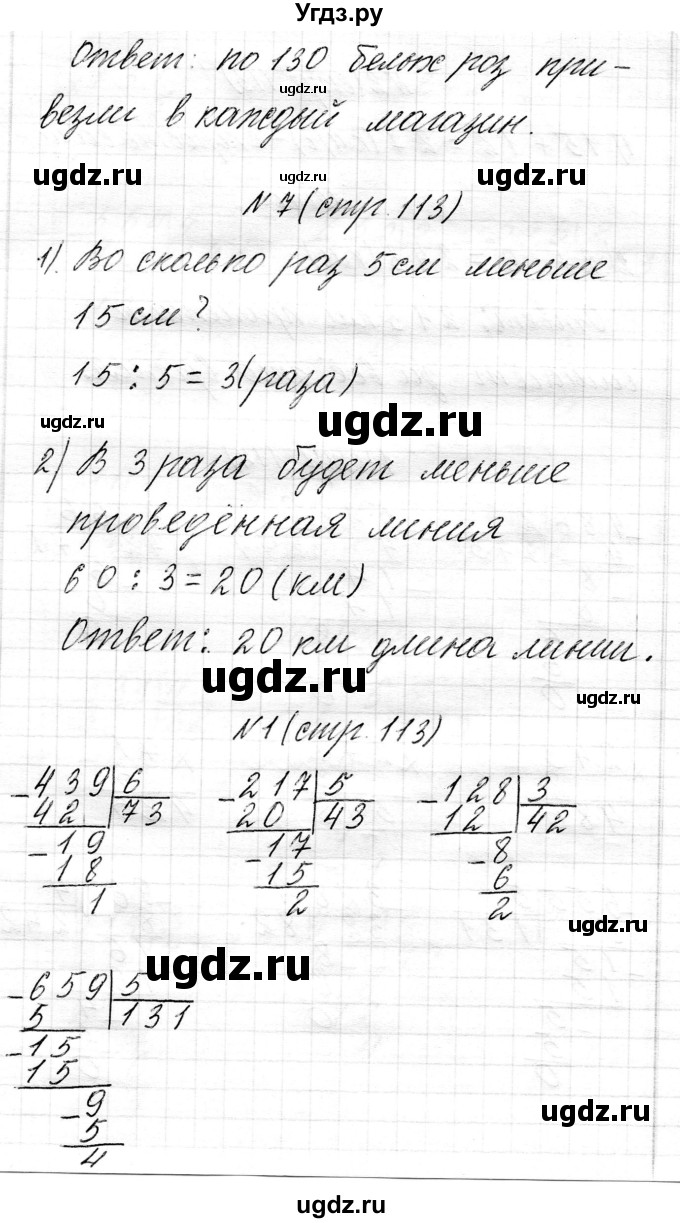 Угдз.ру
Ответ: по 130 белых роз при-
ugdz.ru
везли в каждый магазин.
ugdz.ru ugdz.ru ugdz.ru
N 7 (стр. 113)
1). Во сколько раз 5 см меньше
15 см?
15 : 5 = 3 (раза)
ugdz.ru ugdz.ru
2) В 3 раза будет меньше
проведённая линия
60 : 3 = 20 (км)
Ответ: 20 км длина линии.
ugdz.ru ugdz.ru
N 1 (стр. 113)
-439|6 -217|5 -128|3
42 |73 20 |43 12 |42
-19 -17 -8
18 15 6
1 2 2
ugdz.ru
ugdz.ru
-659|5
5 |131
-15
15
-9
5
4
ugdz.ru
ugdz.ru